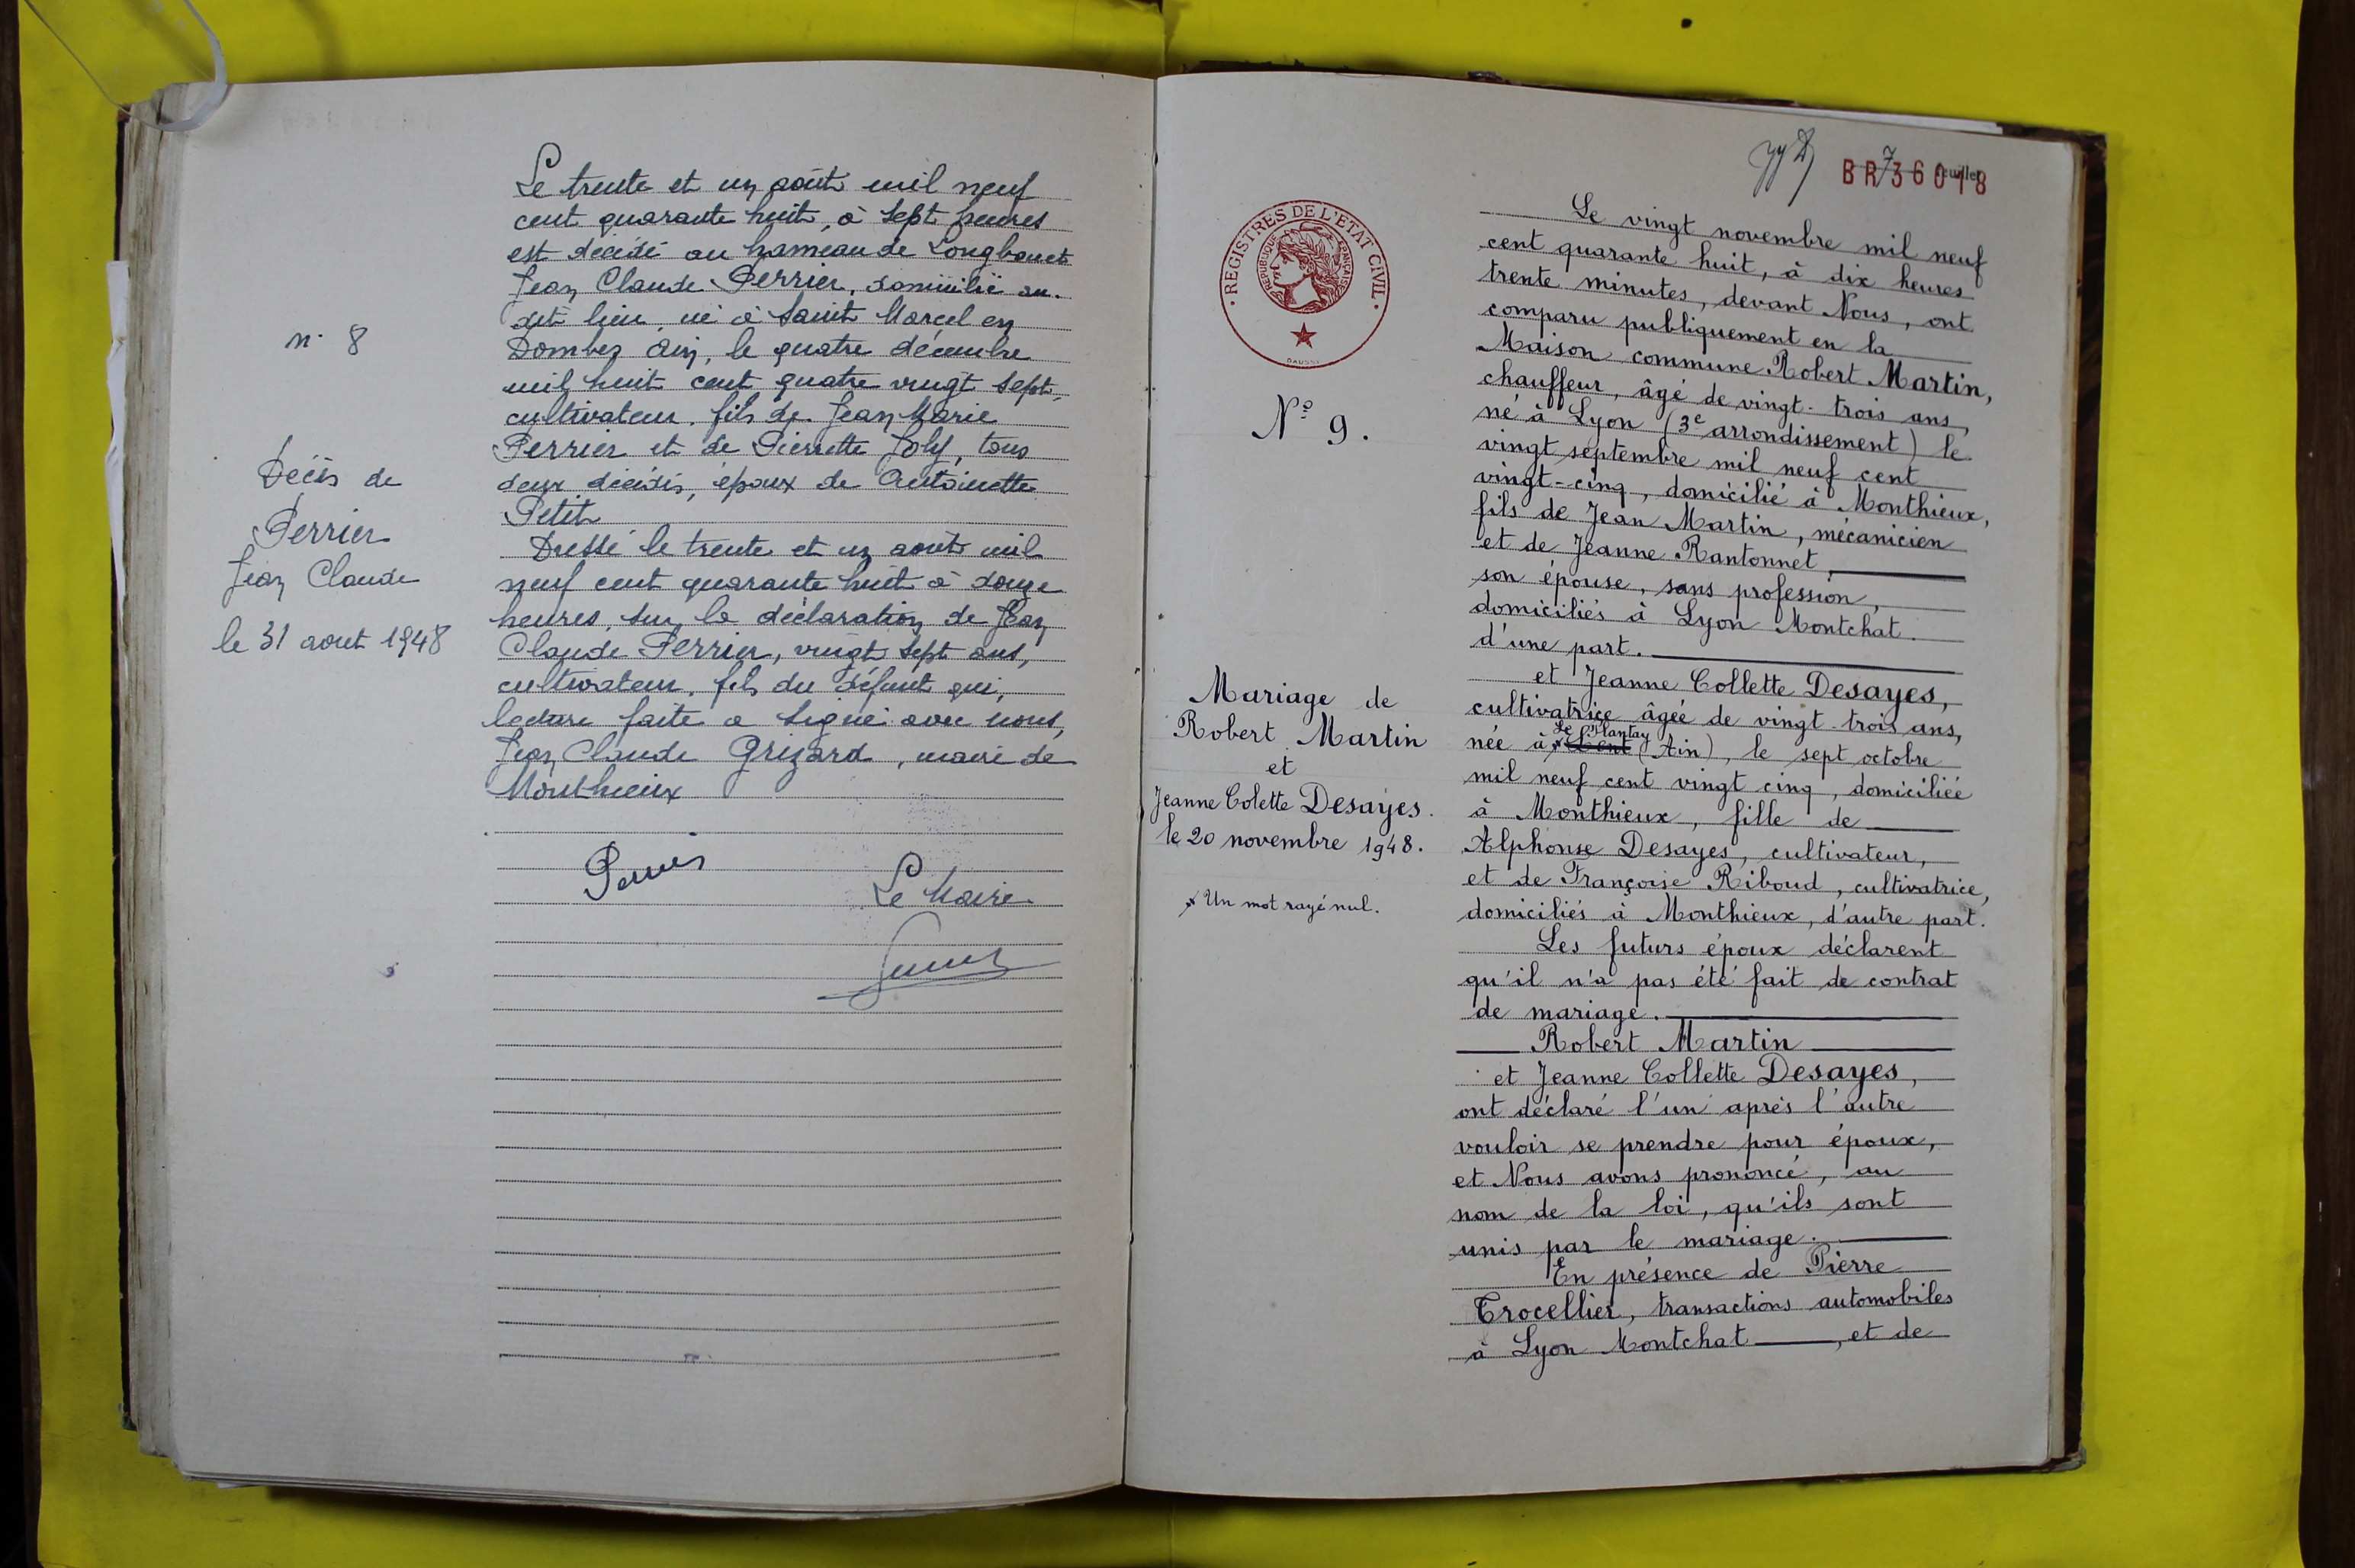 n° 8
Décès de
Perrier
Jean Claude
le 31 aout 1948
Le trente et un août mil neuf
cent quarante huit, à sept heures
est décédé au hameau de
Jean Claude Perrier, domicilié au
dit lieu, né à Saint Marcel en
Dombes Ain, le quatre décembre
mil huit cent quatre vingt sept,
cultivateur, fils de Jean Marie
Perrier et de Pierrette Joly, tous
deux décédés, époux de Antoinette
Petit
Dressé le trente et un août mil
neuf cent quarante huit à douze
heures, sur la déclaration de Jean
Claude Perrier, vingt sept ans,
cultivateur, fils du défunt qui,
lecture faite a signé avec nous,
Jean Claude Grizard, maire de
Monthieux
Perrier
Le Maire
BR 36018
7
feuillet
REGISTRES DE L'ETAT CIVIL
REPUBLIQUE FRANÇAISE
N° 9.
Mariage de
Robert Martin
et
Jeanne Colette Desayes.
le 20 novembre 1948.
x Un mot rayé nul.
Le vingt novembre mil neuf
cent quarante huit, à dix heures
trente minutes, devant Nous, ont
comparu publiquement en la
Maison commune Robert Martin,
chauffeur, âgé de vingt-trois ans,
né à Lyon (3e arrondissement) le
vingt septembre mil neuf cent
vingt-cinq, domicilié à Monthieux,
fils de Jean Martin, mécanicien
et de Jeanne Rantonnet,
son épouse, sans profession,
domiciliés à Lyon Montchat.
d'une part.
et Jeanne Collette Desayes,
cultivatrice âgée de vingt-trois ans,
Le Plantay
née à x Lent (Ain), le sept octobre
mil neuf cent vingt cinq, domiciliée
à Monthieux, fille de
Alphonse Desayes, cultivateur,
et de Françoise Riboud, cultivatrice,
domiciliés à Monthieux, d'autre part.
Les futurs époux déclarent
qu'il n'a pas été fait de contrat
de mariage.
Robert Martin
et Jeanne Collette Desayes,
ont déclaré l'un après l'autre
vouloir se prendre pour époux,
et Nous avons prononcé, au
nom de la loi, qu'ils sont
unis par le mariage.
En présence de Pierre
Trocellier, transactions automobiles
à Lyon Montchat, et de